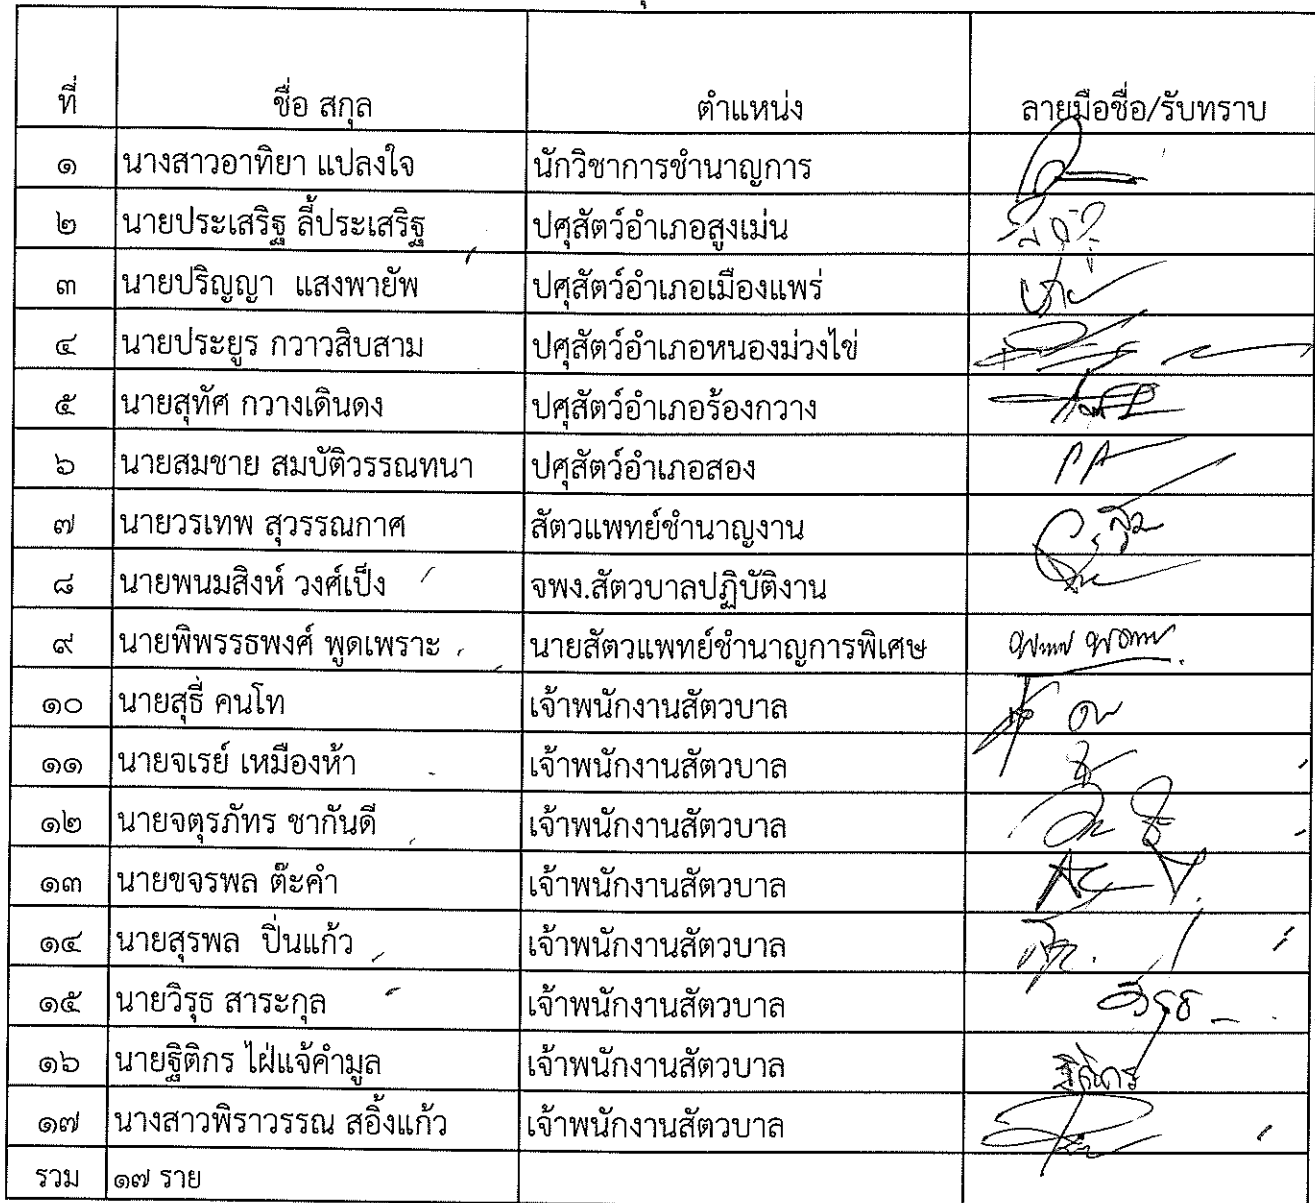 ที่ ชื่อ สกุล ตำแหน่ง ลายมือชื่อ/รับทราบ
๑ นางสาวอาทิยา แปลงใจ นักวิชาการชำนาญการ
๒ นายประเสริฐ ลี้ประเสริฐ ปศุสัตว์อำเภอสูงเม่น
๓ นายปริญญา แสงพายัพ ปศุสัตว์อำเภอเมืองแพร่
๔ นายประยูร กวาวสิบสาม ปศุสัตว์อำเภอหนองม่วงไข่
๕ นายสุทัศ กวางเดินดง ปศุสัตว์อำเภอร้องกวาง
๖ นายสมชาย สมบัติวรรณทนา ปศุสัตว์อำเภอสอง
๗ นายวรเทพ สุวรรณกาศ สัตวแพทย์ชำนาญงาน
๘ นายพนมสิงห์ วงศ์เป็ง จพง.สัตวบาลปฏิบัติงาน
๙ นายพิพรรธพงศ์ พูดเพราะ นายสัตวแพทย์ชำนาญการพิเศษ
๑๐ นายสุธี คนโท เจ้าพนักงานสัตวบาล
๑๑ นายจเรย์ เหมืองห้า เจ้าพนักงานสัตวบาล
๑๒ นายจตุรภัทร ชากันดี เจ้าพนักงานสัตวบาล
๑๓ นายขจรพล ต๊ะคำ เจ้าพนักงานสัตวบาล
๑๔ นายสุรพล ปิ่นแก้ว เจ้าพนักงานสัตวบาล
๑๕ นายวิรุธ สาระกุล เจ้าพนักงานสัตวบาล วิรุธ
๑๖ นายฐิติกร ไฝ่แจ้คำมูล เจ้าพนักงานสัตวบาล ฐิติกร
๑๗ นางสาวพิราวรรณ สอิ้งแก้ว เจ้าพนักงานสัตวบาล
รวม ๑๗ ราย